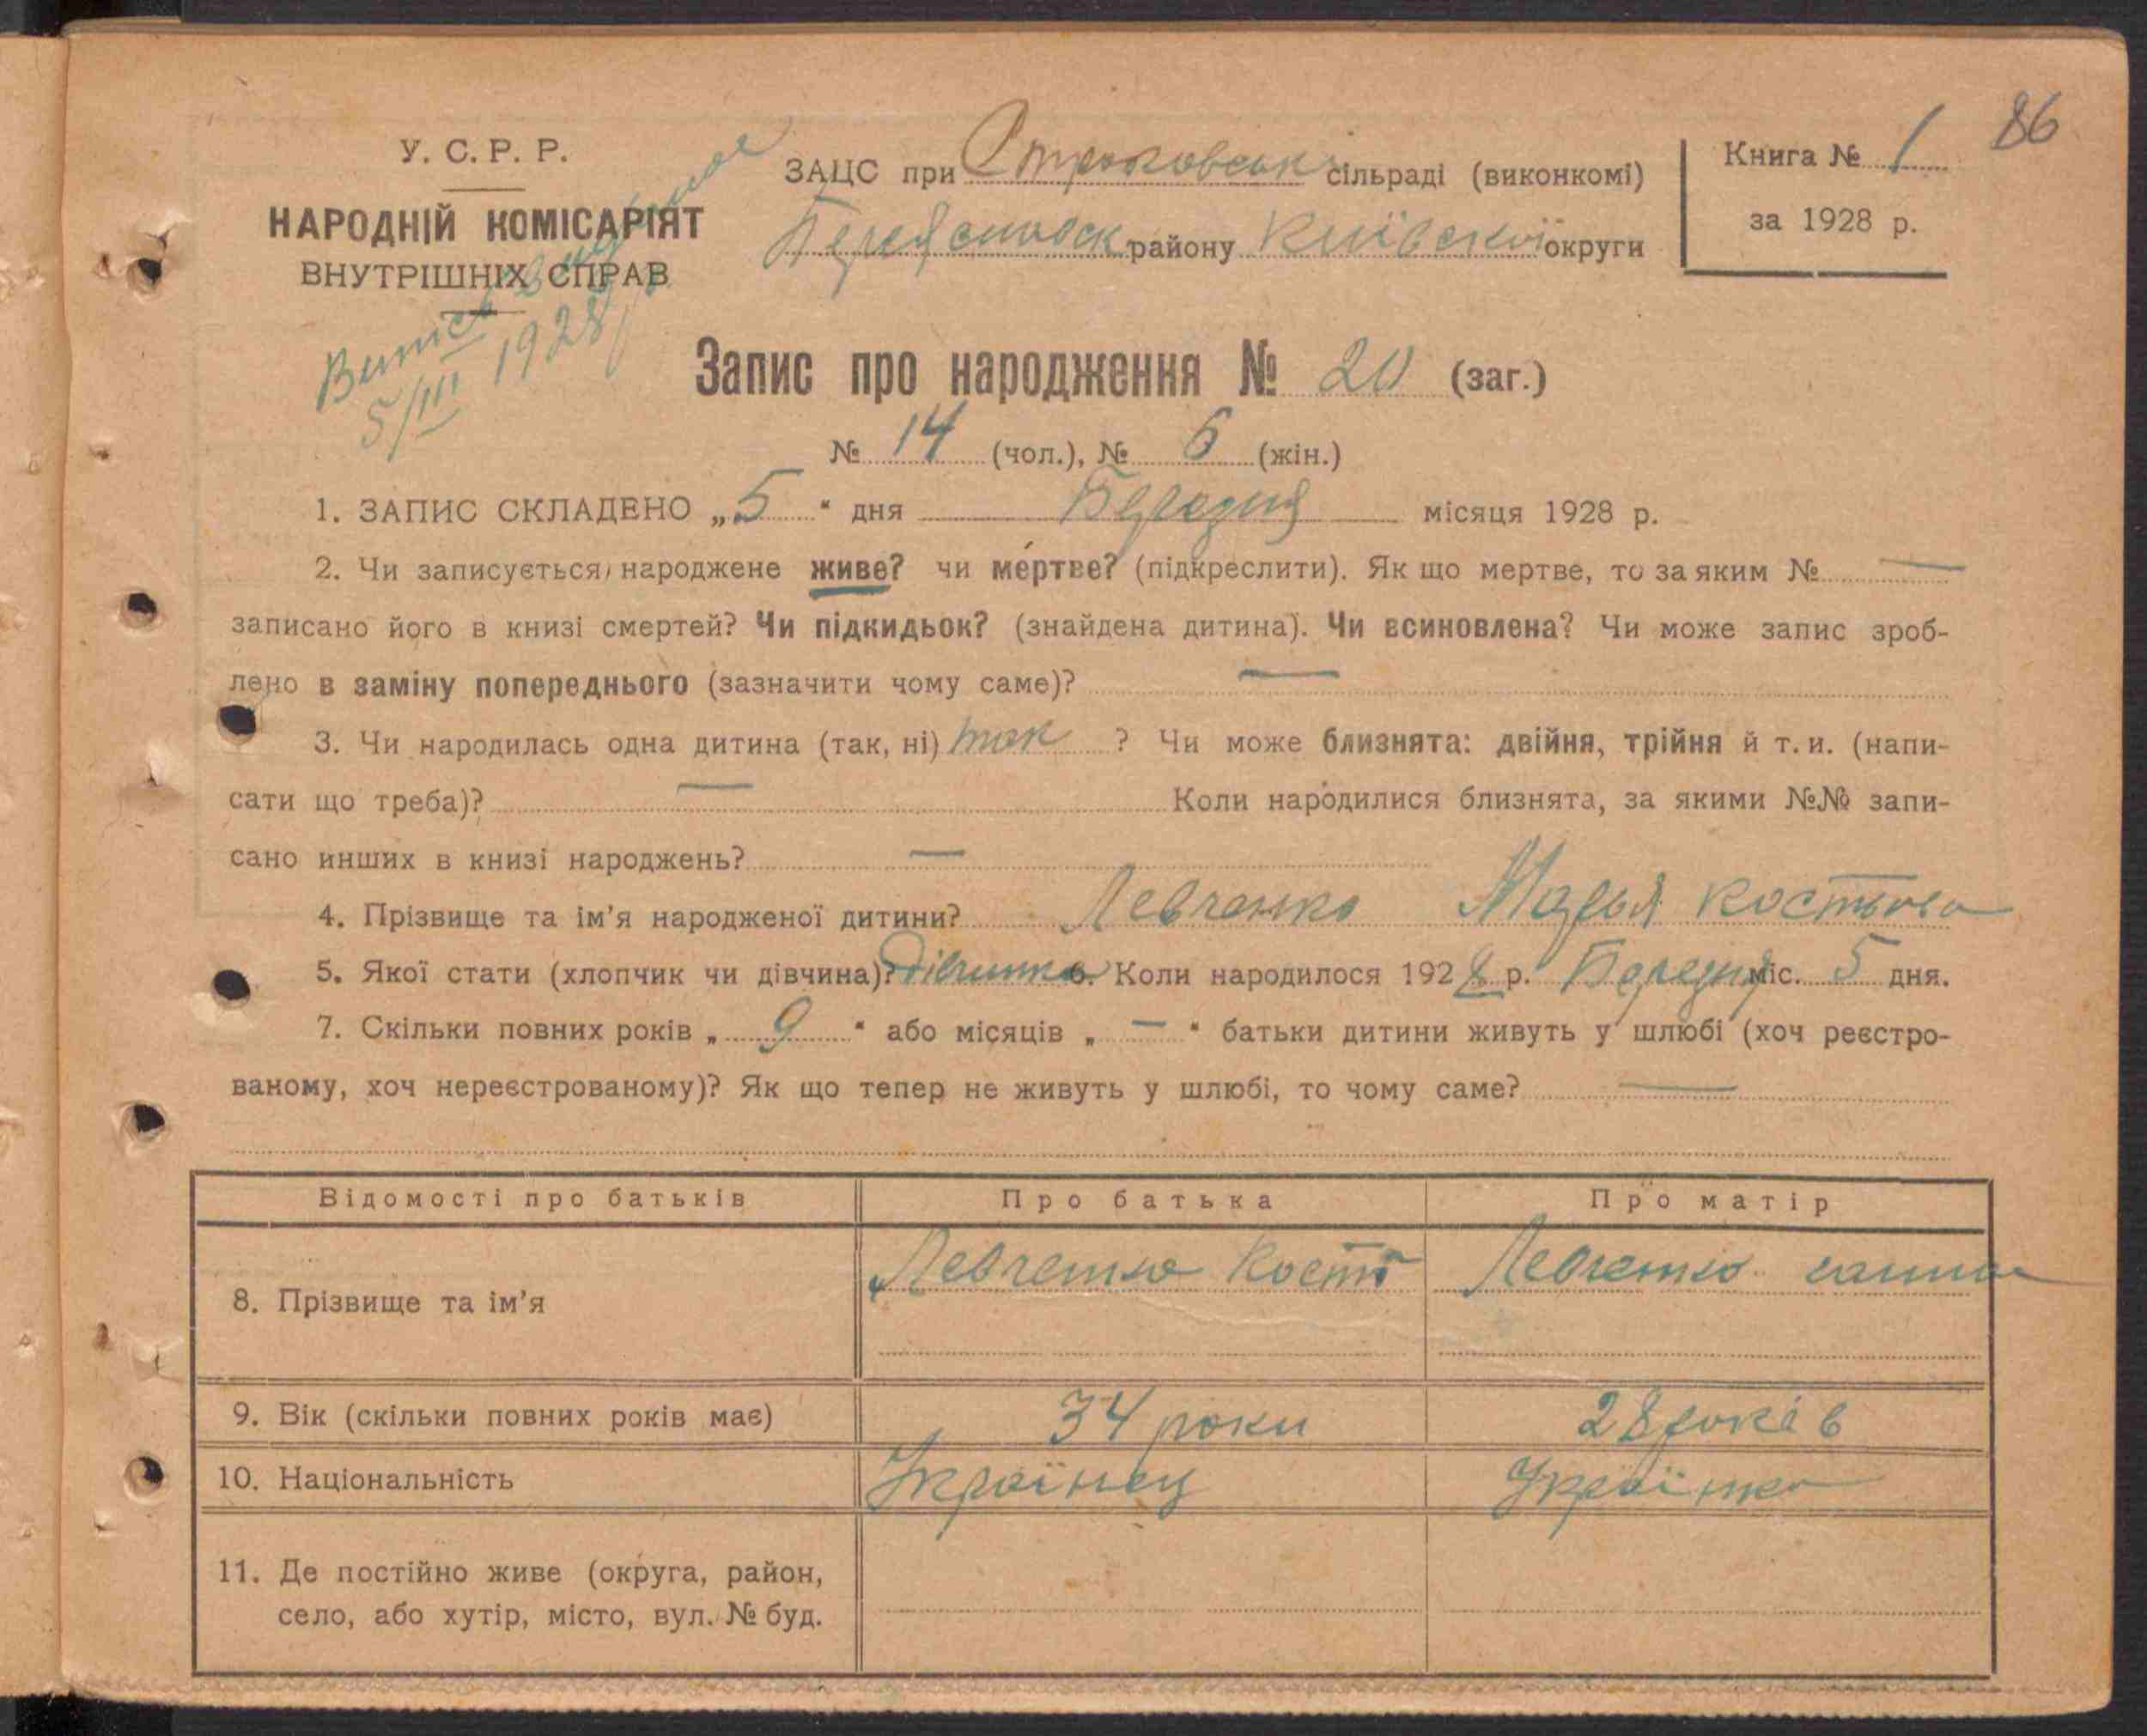 86
У. С. Р. Р.
НАРОДНІЙ КОМІСАРІЯТ
ВНУТРІШНІХ СПРАВ
5/III 1928 р.
ЗАЦС при Строковськ сільраді (виконкомі)
району Київської округи
Книга № 1
за 1928 р.
Запис про народження № 20 (заг.)
№ 14 (чол.), № 6 (жін.)
1. ЗАПИС СКЛАДЕНО „5“ дня Березня місяця 1928 р.
2. Чи записується народжене живе? чи мертве? (підкреслити). Як що мертве, то за яким № —
записано його в книзі смертей? Чи підкидьок? (знайдена дитина). Чи всиновлена? Чи може запис зроб-
лено в заміну попереднього (зазначити чому саме)? —
3. Чи народилась одна дитина (так, ні) так ? Чи може близнята: двійня, трійня й т. и. (напи-
сати що треба)? — Коли народилися близнята, за якими №№ запи-
сано инших в книзі народжень? —
4. Прізвище та ім'я народженої дитини? Левченко Марья
5. Якої стати (хлопчик чи дівчина)? Дівчинка 6. Коли народилося 1928 р. Березня міс. 5 дня.
7. Скільки повних років „ 9 “ або місяців „ — “ батьки дитини живуть у шлюбі (хоч реєстро-
ваному, хоч нереєстрованому)? Як що тепер не живуть у шлюбі, то чому саме? —
Відомості про батьків Про батька Про матір
8. Прізвище та ім'я Левченко Кость Левченко
9. Вік (скільки повних років має) 34 роки 28 років
10. Національність Українец Українка
11. Де постійно живе (округа, район,
село, або хутір, місто, вул. № буд.